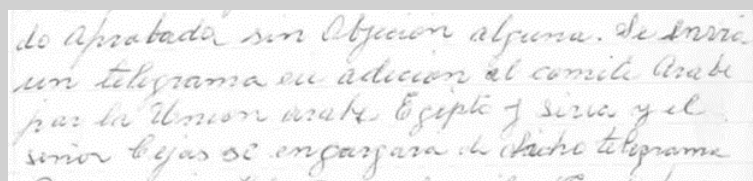 do aprobada sin Objecion alguna. Se envia
un telegrama en adicion al comite Arabe
por la Union arabe Egipto y Siria y el
señor Cejas se engargara de dicho telegrama